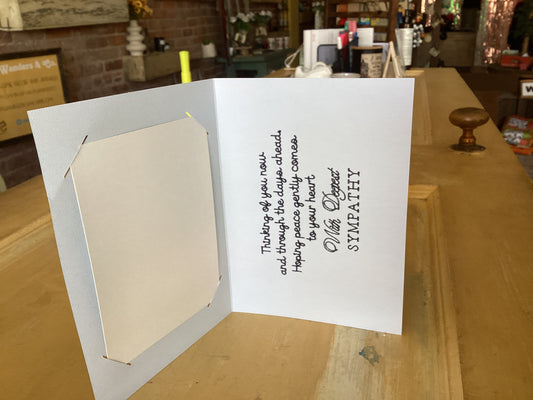 Thinking of you now
and through the days ahead.
Hoping peace gently comes
to your heart
With Deepest
SYMPATHY
Wanders &